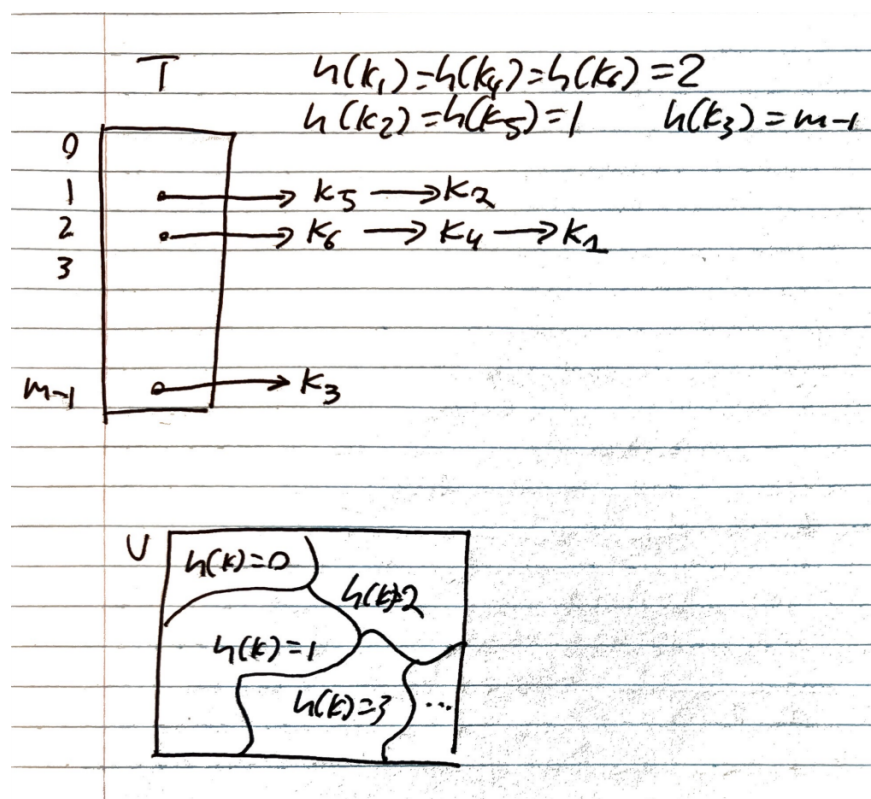 T h(k₁)=h(k₄)=h(k₆)=2
h(k₂)=h(k₅)=1 h(k₃)=m-1
0
1 → k₅ → k₂
2 → k₆ → k₄ → k₁
3
m-1 → k₃
U
h(k)=0
h(k)=2
h(k)=1
h(k)=3 ...